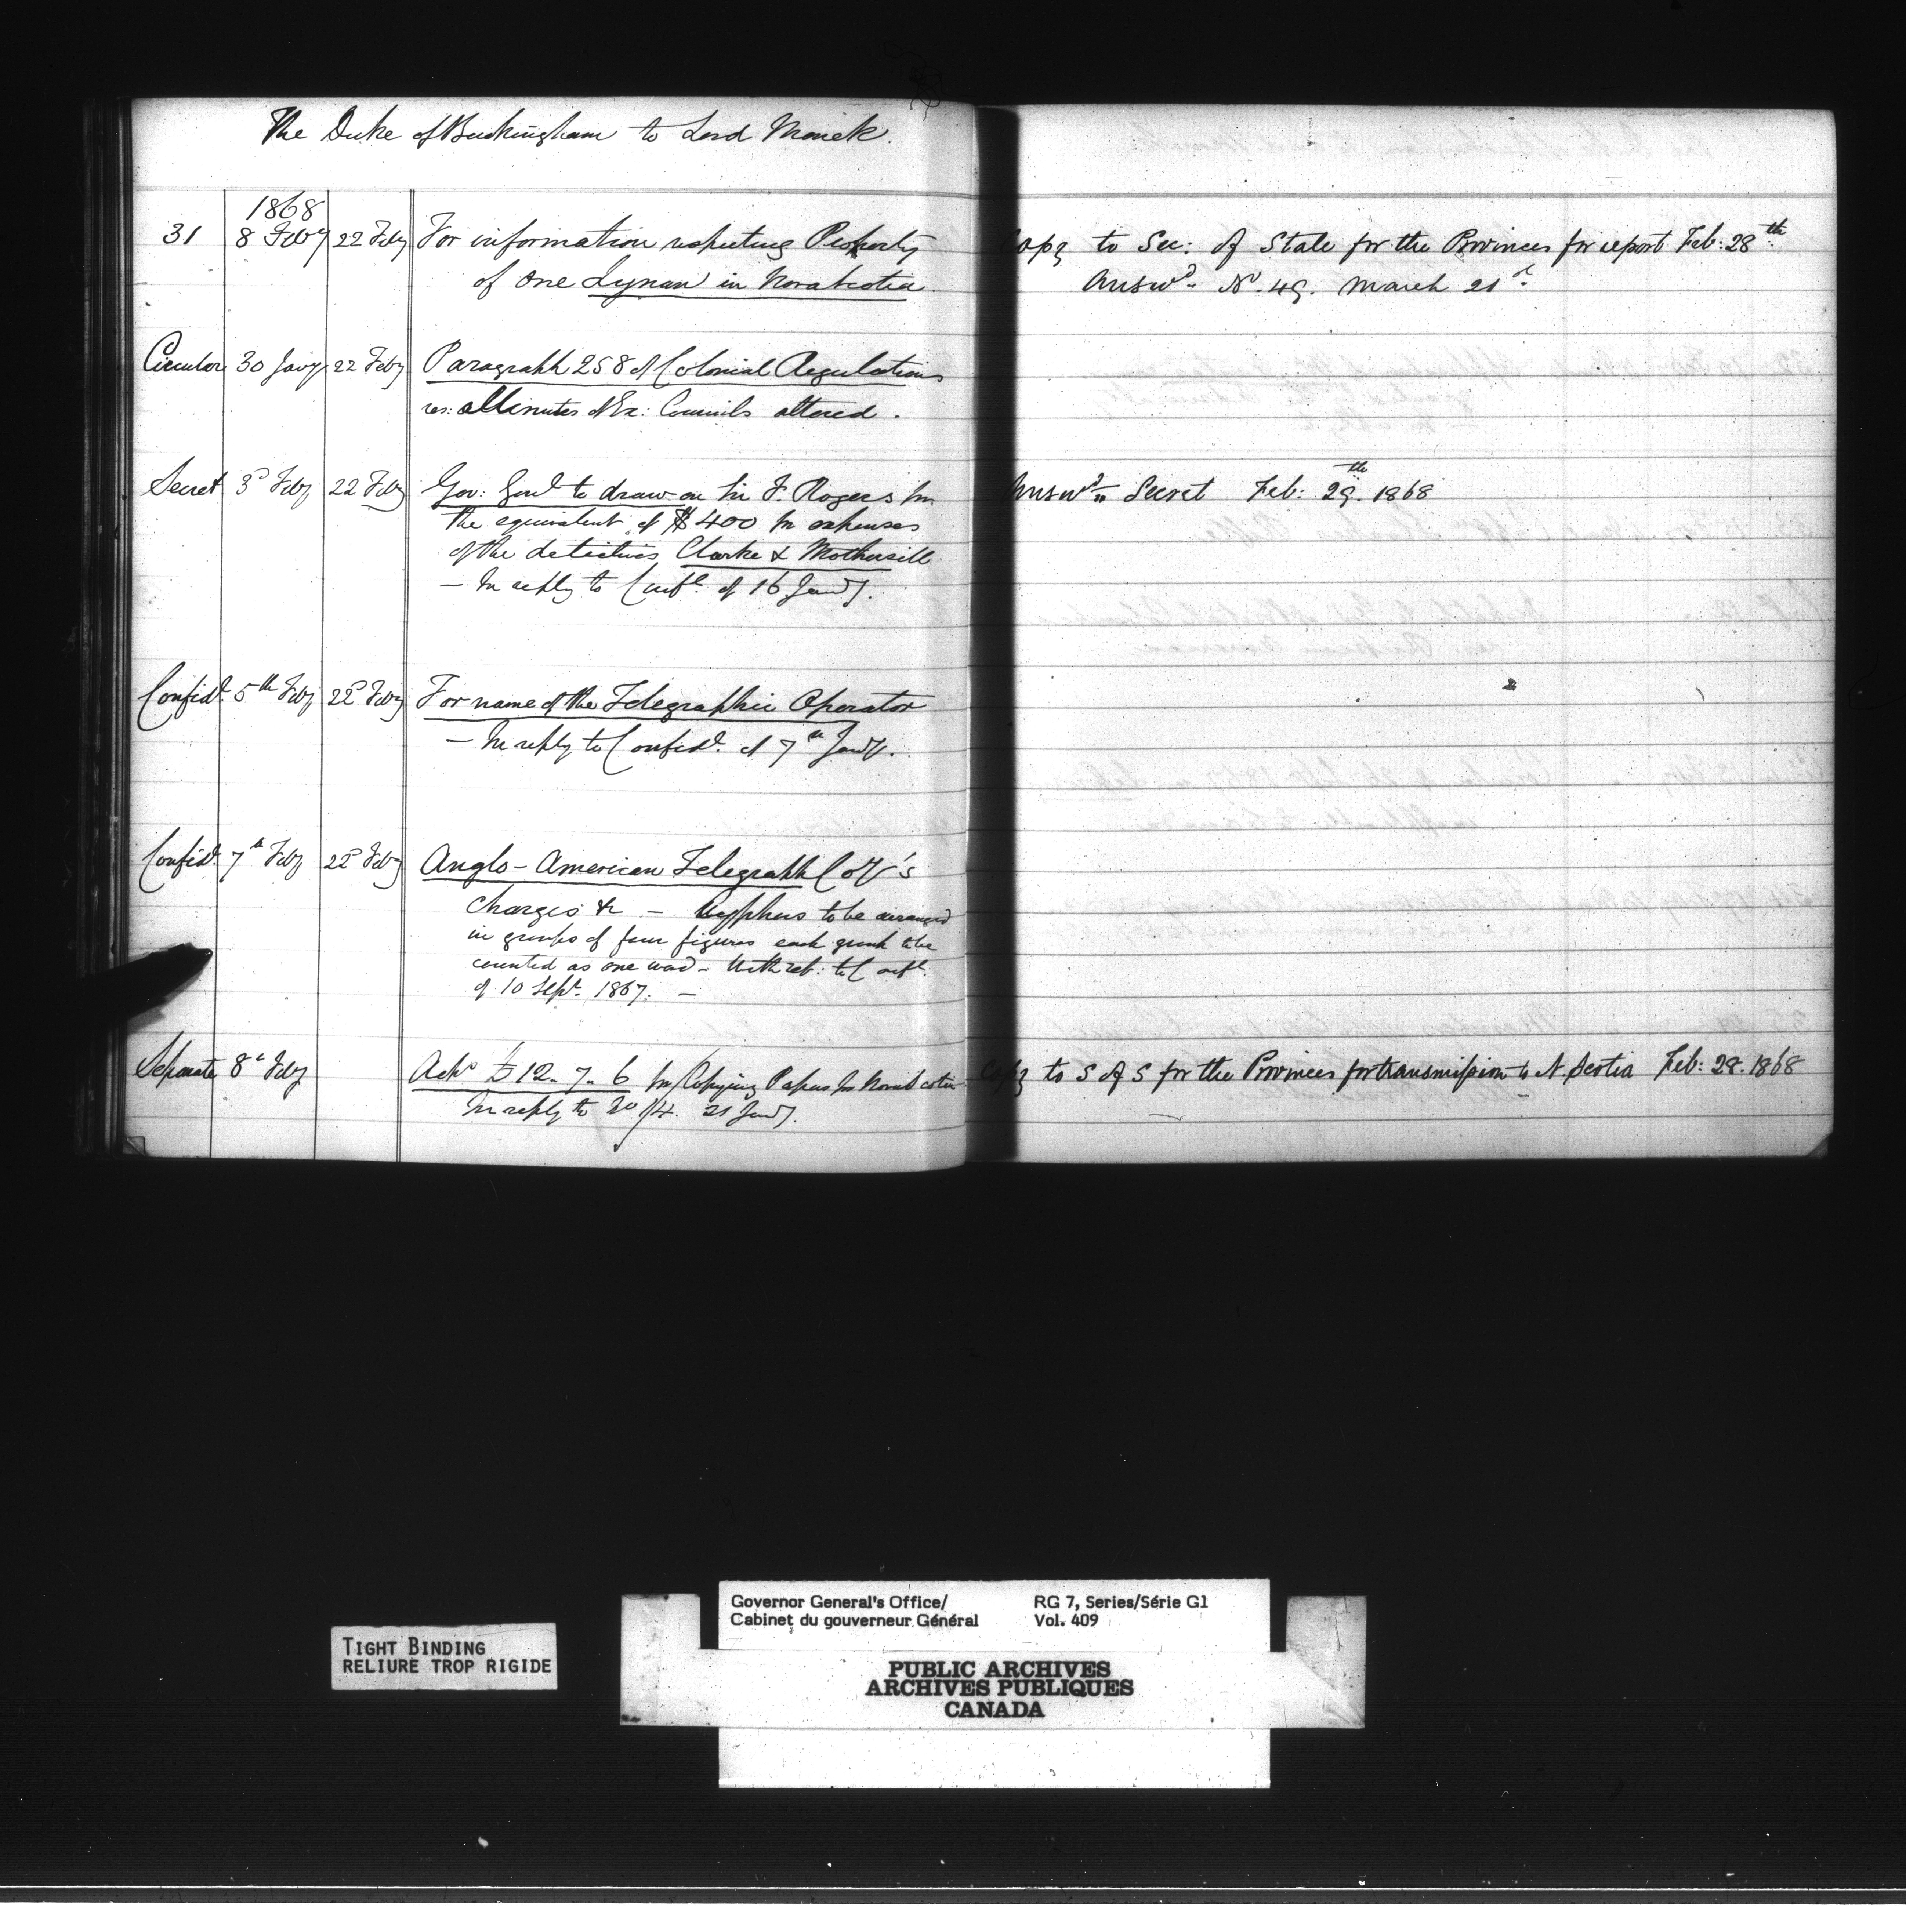 The Duke of Buckingham to Lord Monck.
1868
31 8 Feby 22 Feby For information respecting Property
of one Lynan in Nova Scotia
Copy to Sec: of State for the Provinces for report Feb: 28th
Answd. No. 49. March 21st
Circular 30 Jany 22 Feby Paragraph 258 of Colonial Regulations
res: Minutes of Ex: Councils altered.
Secret 3d Feby 22 Feby Gov: Genl to draw on Sir F. Rogers for
the equivalent of $400 for expenses
of the detectives Clarke & Mothersill
— In reply to Confl. of 16 Jany.
Answd. Secret Feb: 29th. 1868
Confidl. 5th Feby 22d Feby For name of the Telegraphic Operator
— In reply to Confidl. of 7th Jany.
Confidl. 7th Feby 22d Feby Anglo-American Telegraph Coy's
charges &c — Cyphers to be arranged
in groups of four figures each group to be
counted as one word — With ref: to Confl.
of 10 Sept. 1867. —
Separate 8th Feby Ackg £12. 7. 6 for Copying Papers for Nova Scotia
In reply to No 14. 21 Jany.
Copy to S of S for the Provinces for transmission to N. Scotia Feb: 28. 1868
TIGHT BINDING
RELIURE TROP RIGIDE
Governor General's Office/ RG 7, Series/Série G1
Cabinet du gouverneur Général Vol. 409
PUBLIC ARCHIVES
ARCHIVES PUBLIQUES
CANADA